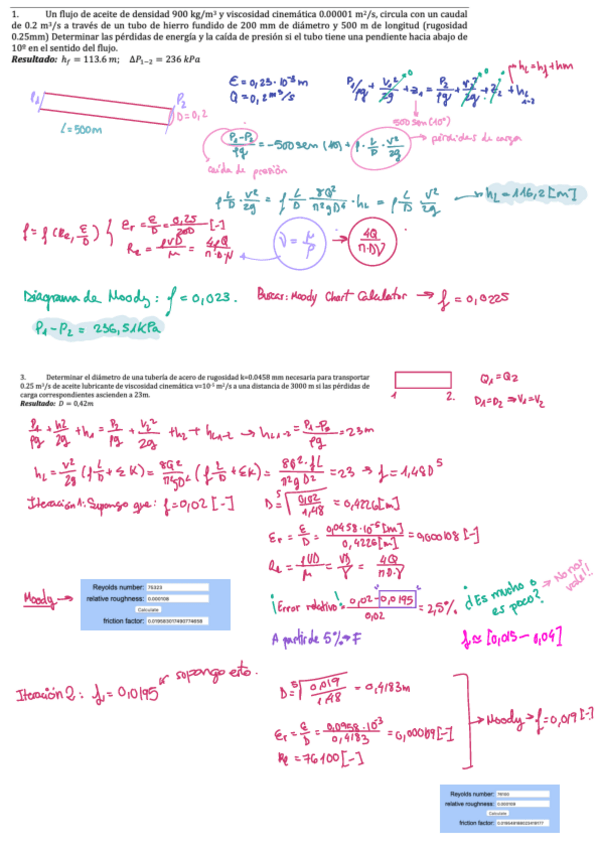 1. Un flujo de aceite de densidad 900 kg/m³ y viscosidad cinemática 0.00001 m²/s, circula con un caudal
de 0.2 m³/s a través de un tubo de hierro fundido de 200 mm de diámetro y 500 m de longitud (rugosidad
0.25mm) Determinar las pérdidas de energía y la caída de presión si el tubo tiene una pendiente hacia abajo de
10º en el sentido del flujo.
Resultado: h_f = 113.6 m; ΔP₁₋₂ = 236 kPa
h_L = h_f + h_m
P₁
P₂
D=0,2
L=500m
Q = 0,2 m³/s
P₁/ρg + V₁²/2g + z₁ = P₂/ρg + V₂²/2g + z₂ + h_L 1-2
500 sen(10º)
(P₁-P₂)/ρg = -500 sen(10) + f · L/D · V²/2g → pérdidas de carga
caída de presión
f L/D · V²/2g = f L/D · 8Q²/π²gD⁴ · h_L = f L/D V²/2g → h_L = 116,2 [m]
f = f(Re, ε/D) { εr = ε/D = 0,25/200 [-]
Re = ρVD/μ = 4ρQ/π·D·μ
ν = μ/ρ → 4Q/π·Dν
Diagrama de Moody: f = 0,023. Buscar: Moody Chart Calculator → f = 0,0225
P₁ - P₂ = 236,51 kPa
3. Determinar el diámetro de una tubería de acero de rugosidad k=0.0458 mm necesaria para transportar
0.25 m³/s de aceite lubricante de viscosidad cinemática ν=10⁻⁵ m²/s a una distancia de 3000 m si las pérdidas de
carga correspondientes ascienden a 23m.
Resultado: D = 0,42m
1 2.
Q₁ = Q₂
D₁=D₂ ⇒ V₁=V₂
h_L1-2 = (P₁-P₂)/ρg = 23m
h_L = V²/2g (f L/D + ΣK) = 8Q²/π²gD⁴ (f L/D + ΣK) = 8Q²·fL/π²gD⁵ = 23 → f = 1,48D⁵
Iteración 1: Supongo que: f = 0,02 [-] D = ⁵√(0,02/1,48) = 0,4226 [m]
Re = ρVD/μ = VD/ν = 4Q/π·D·ν
Moody →
Reyolds number: 75323
relative roughness: 0.000108
Calculate
friction factor:
¡Error relativo! (0,02 - 0,0195)/0,02 = 2,5%. ¿Es mucho o es poco? → No nos vale!!
A partir de 5% → F
f ≈ [0,015 - 0,04]
Iteración 2: f = 0,0195 supongo esto.
D = ⁵√(0,019/1,48) = 0,4183m
Re = 76100 [-]
→ Moody → f = 0,019 [-]
Reyolds number: 76100
relative roughness: 0.000109
Calculate
friction factor: